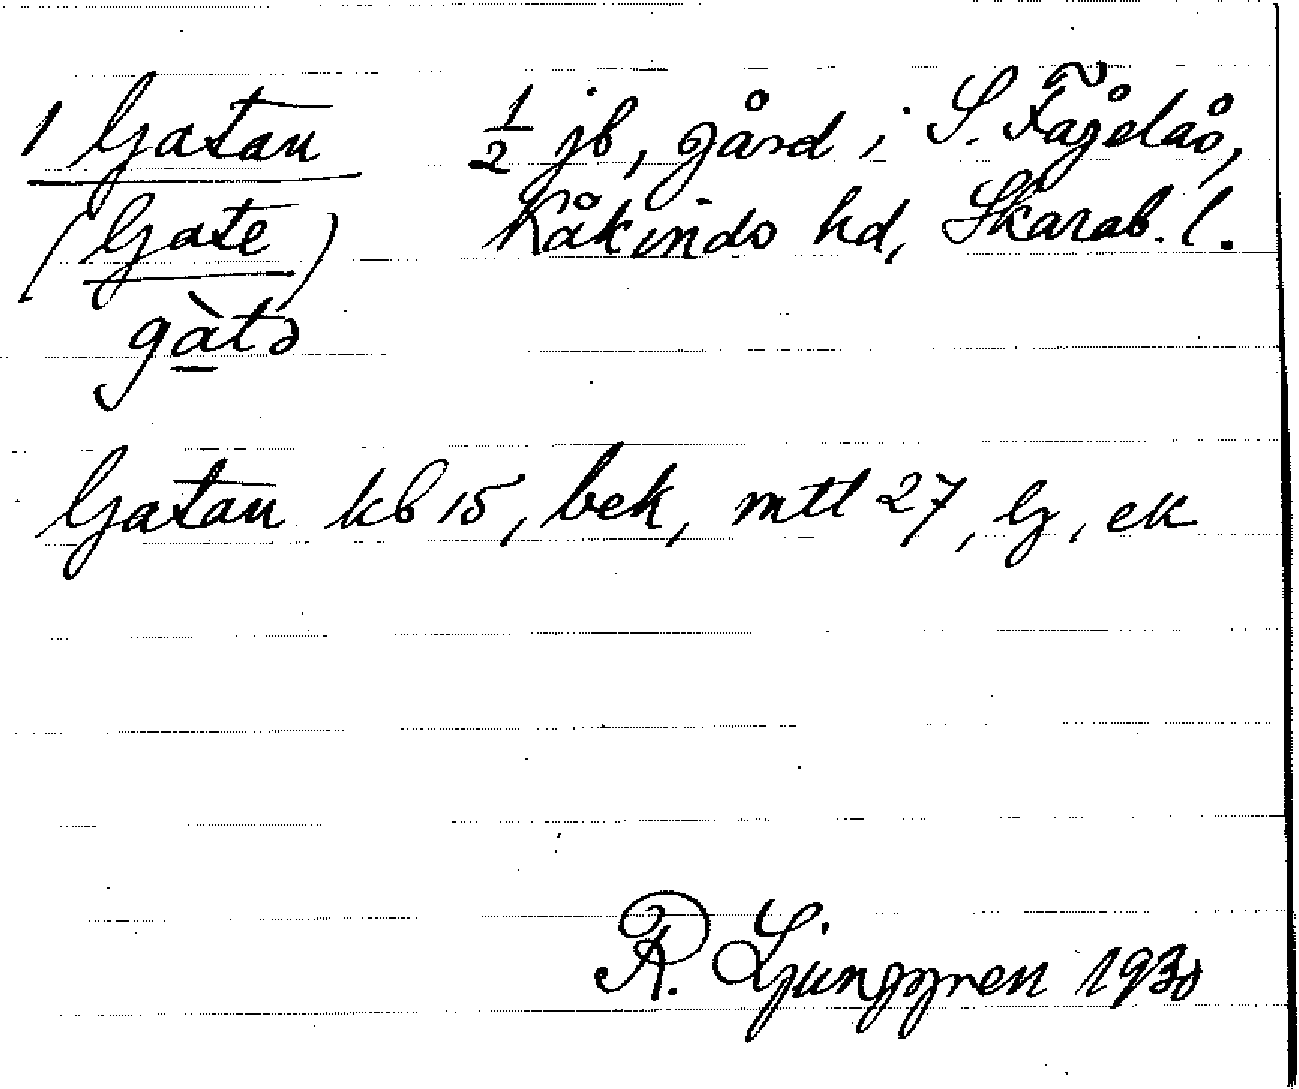 1 Gatan ½ jb, gård i S. Fågelås,
(Gate) Kåkinds hd, Skarab. l.
gàtə
Gatan kb 15, bek, mtl 27, G, ek
R. Ljunggren 1930